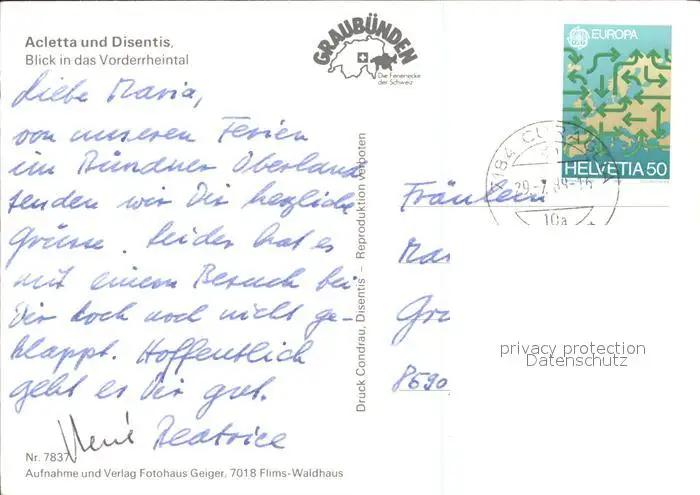 Acletta und Disentis,
Blick in das Vorderrheintal
GRAUBÜNDEN
Die Ferienecke
der Schweiz
EUROPA
HELVETIA 50
29.-7.89-16
10a
Liebe Maria,
von unseren Ferien
im Bündner Oberland
senden wir Dir herzliche
Grüsse. Leider hat es
mit einem Besuch bei
Dir doch noch nicht ge-
klappt. Hoffentlich
geht es Dir gut.
René Beatrice
Nr. 7837
Aufnahme und Verlag Fotohaus Geiger, 7018 Flims-Waldhaus
Druck Condrau, Disentis – Reproduktion verboten
Fräulein
Mar
Gr
8590
privacy protection
Datenschutz